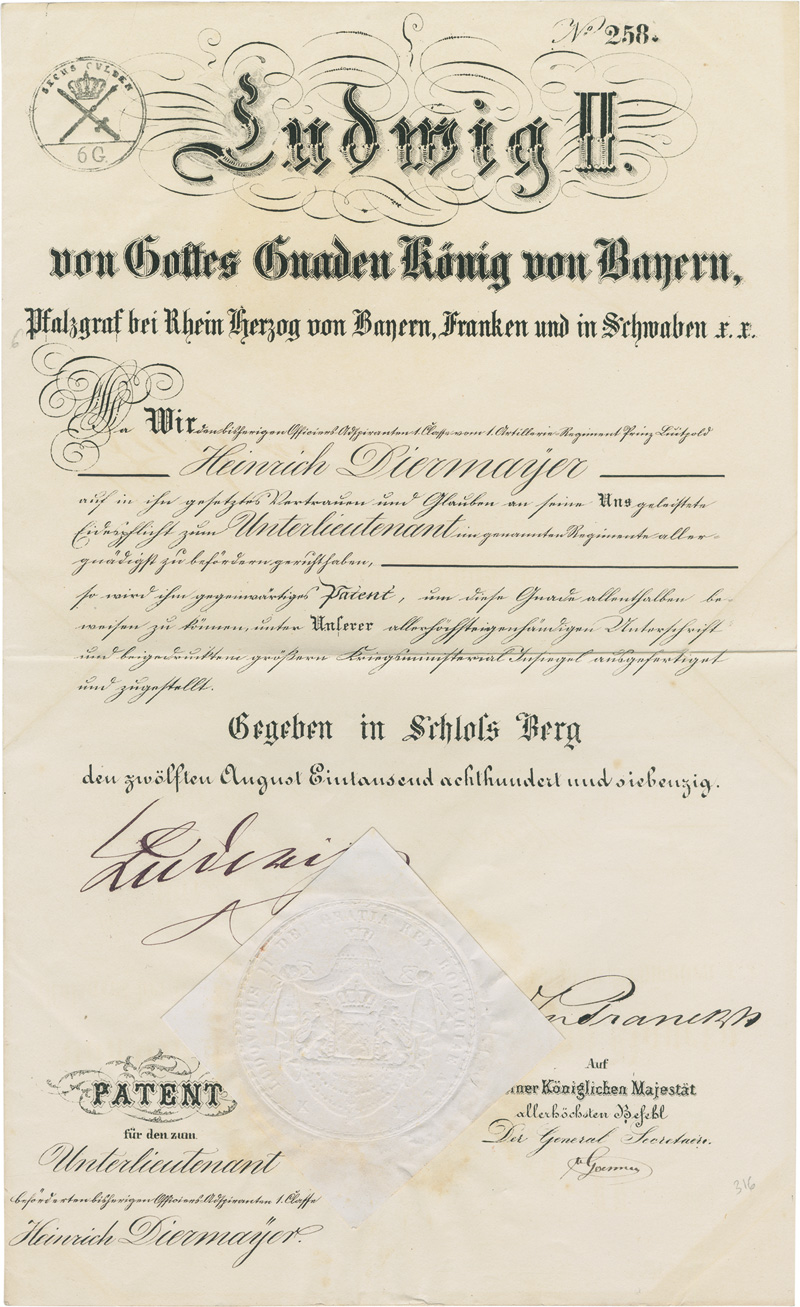 No 258.
SECHS GULDEN
6 G.
Ludwig II.
von Gottes Gnaden König von Bayern,
Pfalzgraf bei Rhein Herzog von Bayern, Franken und in Schwaben x. x.
Da Wir den bisherigen Officiers Adspiranten 1. Classe vom 1. Artillerie Regiment Prinz Luitpold
Heinrich Diermayer
auf in ihn gesetztes Vertrauen und Glauben an seine Uns geleistete
Eidespflicht zum Unterlieutenant im genannten Regimente aller-
gnädigst zu befördern geruht haben,
so wird ihm gegenwärtiges Patent, um diese Gnade allenthalben be-
weisen zu können, unter Unserer allerhöchsteigenhändigen Unterschrift
und beigedrucktem größern Kriegsministerial Insiegel ausgefertiget
und zugestellt.
Gegeben in Schloss Berg
den zwölften August Eintausend achthundert und siebenzig.
Ludwig
Pranckh
PATENT
für den zum
Unterlieutenant
beförderten bisherigen Officiers Adspiranten 1. Classe
Heinrich Diermayer.
Auf
iner Königlichen Majestät
allerhöchsten Befehl
Der General Secretaire.
316